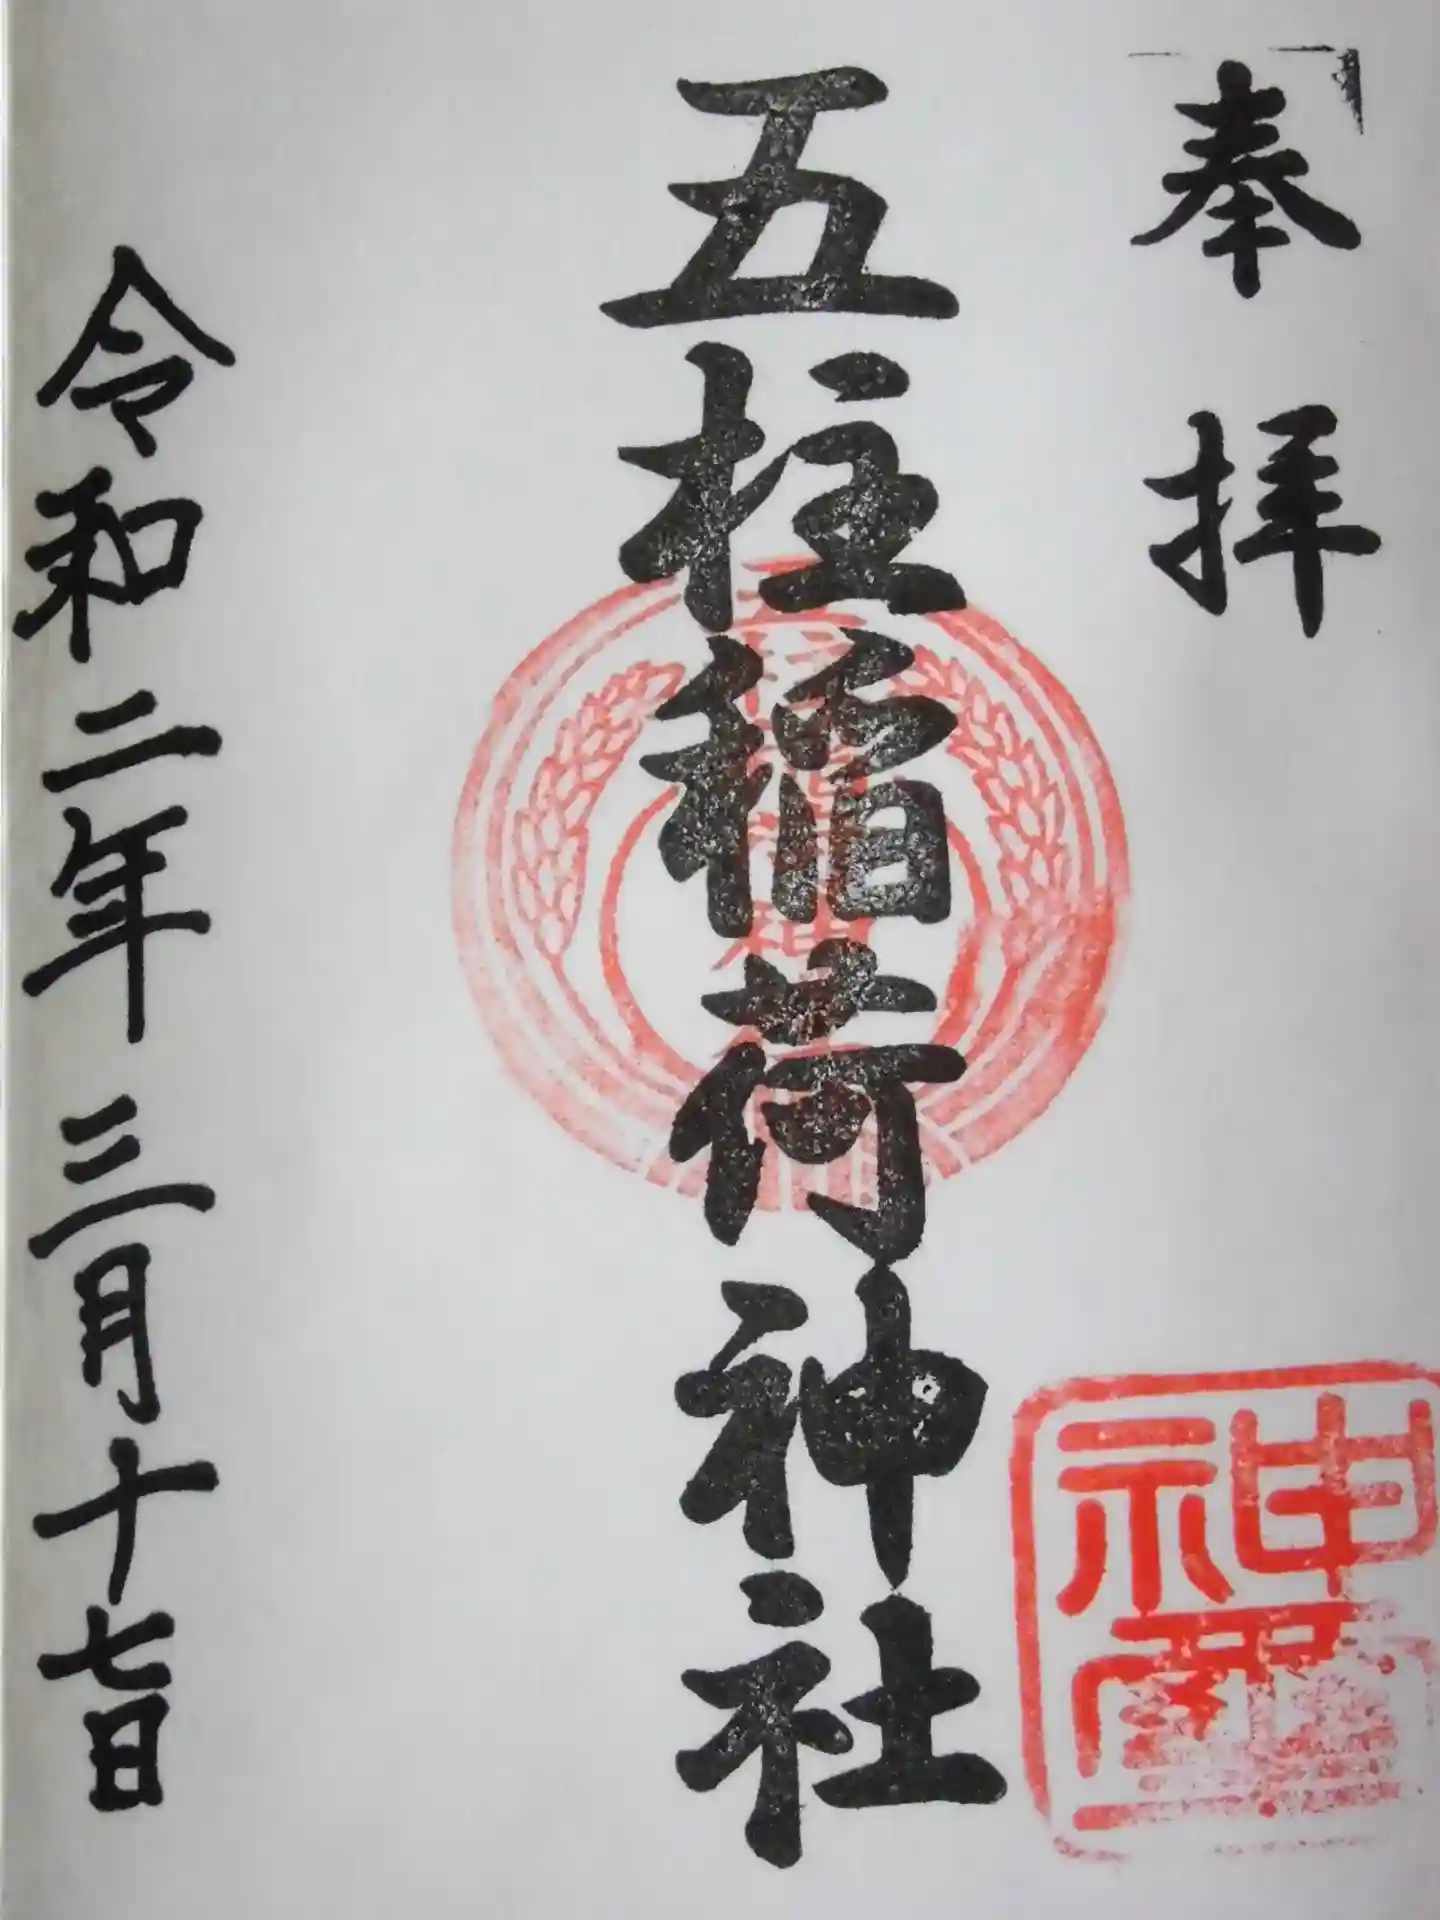 奉拝
五柱稲荷神社
令和二年三月十七日
神璽